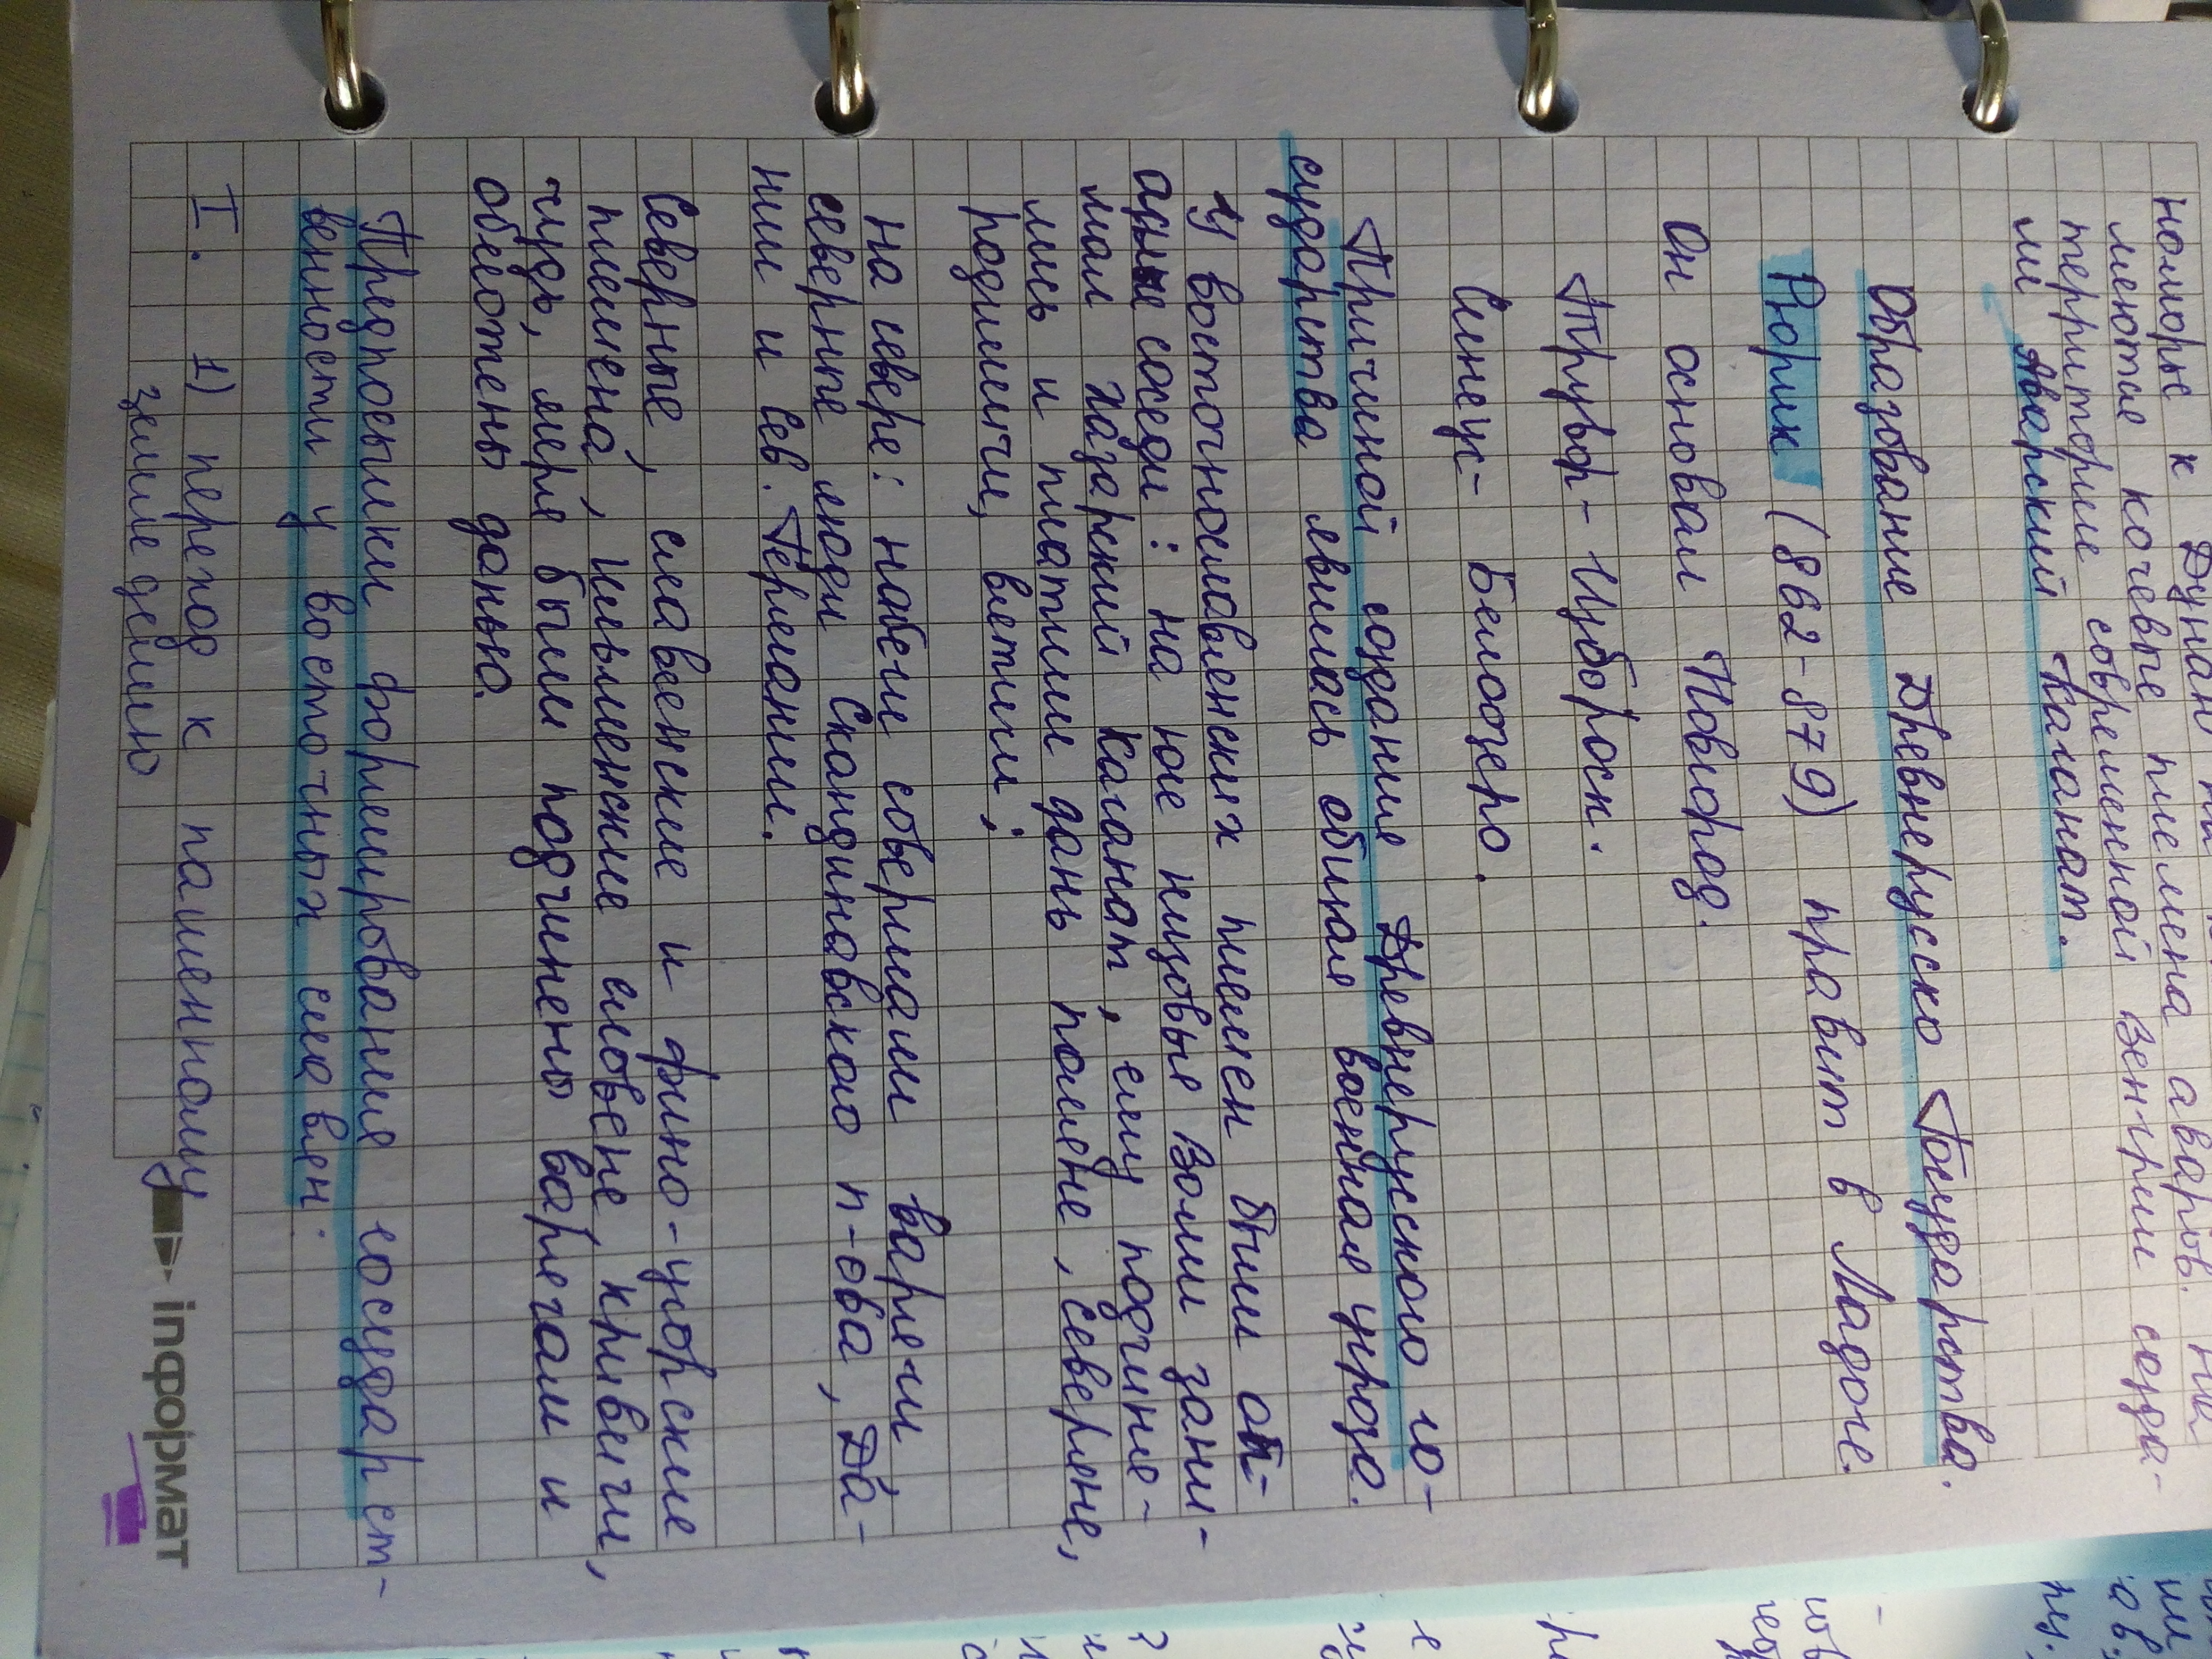 номорье к Дунаю
меются кочевые племена аваров. На
территории современной Венгрии созда-
ли Аварский каганат.
Образование Древнерусско Государства.
Рюрик (862-879) правит в Ладоге.
Он основал Новгород.
Трувор - Изборск.
Синеус - Белоозеро.
Причиной создание Древнерусского го-
сударства явилась общая военная угроза.
У восточнославянских племен были
соседи: на юге низовья Волги зани-
мал Хазарский каганат, ему подчиня-
лись и платили дань поляне, северяне,
родимичи, вятичи;
на севере: набеги совершали варяги
северные люди Скандинавского п-ова, Да-
нии и сев. Германии.
Северные, славянские и фино-угорские
племена, ильменские словене, кривичи,
чудь, меря были подчинены варягам и
обложены данью.
Предпосылки формирования государст-
венности у восточных славян:
I. 1) переход к пашенному
земледелию
inформат